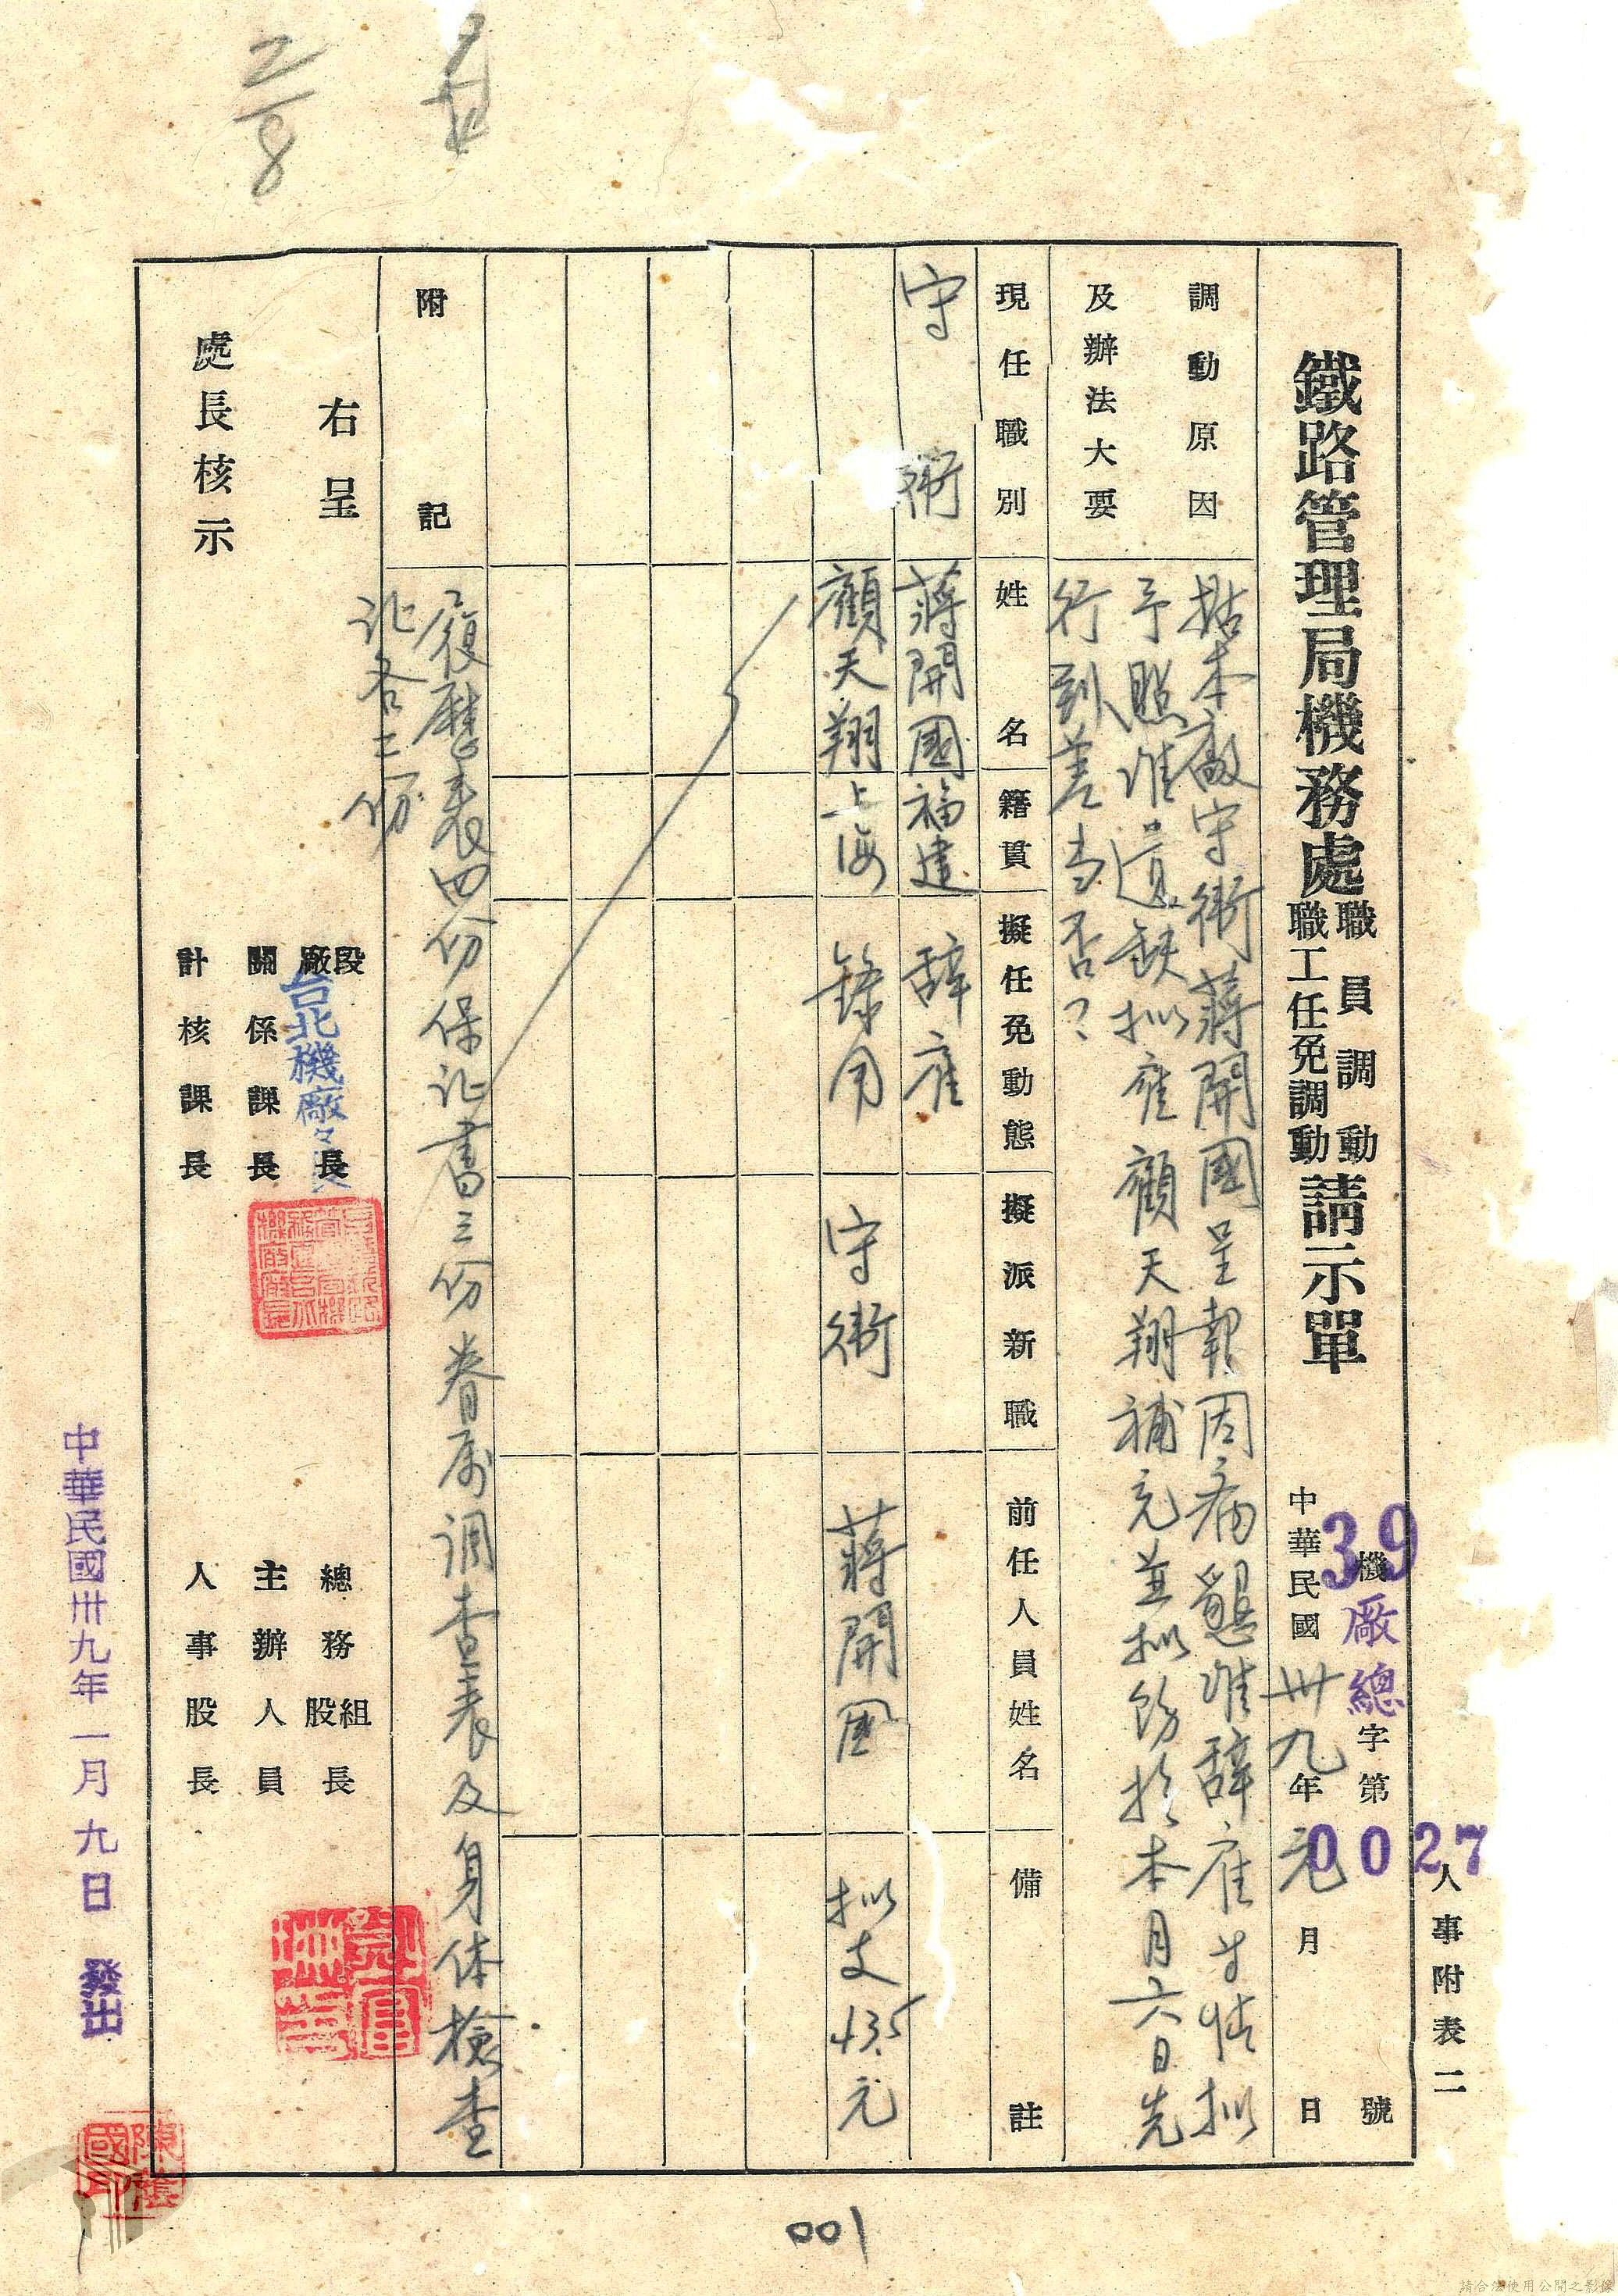 人事附表二
39機廠總字第0027號
中華民國卅九年元月 日
鐵路管理局機務處職員調動職工任免調動請示單
調動原因及辦法大要
据本廠守衛蔣開國呈報因病懇准辭雇等情拟
予照准遺缺拟雇顧天翔補充並拟飭於本月六日先
行到差当否？
現任職別
姓名
籍貫
擬任免動態
擬派新職
前任人員姓名
備註
守衛 蔣開國 福建 辞雇
顧天翔 上海 錄用 守衛 蔣開國 拟支435元
附記
履歷表四份保证書三份眷屬調查表及身体檢查
证各二份
右呈
處長核示
段廠長
台北機廠々長
關係課長
計核課長
總務組股長
主辦人員
人事股長
中華民國卅九年一月九日發出
2/8
001
請合法使用公開之影像